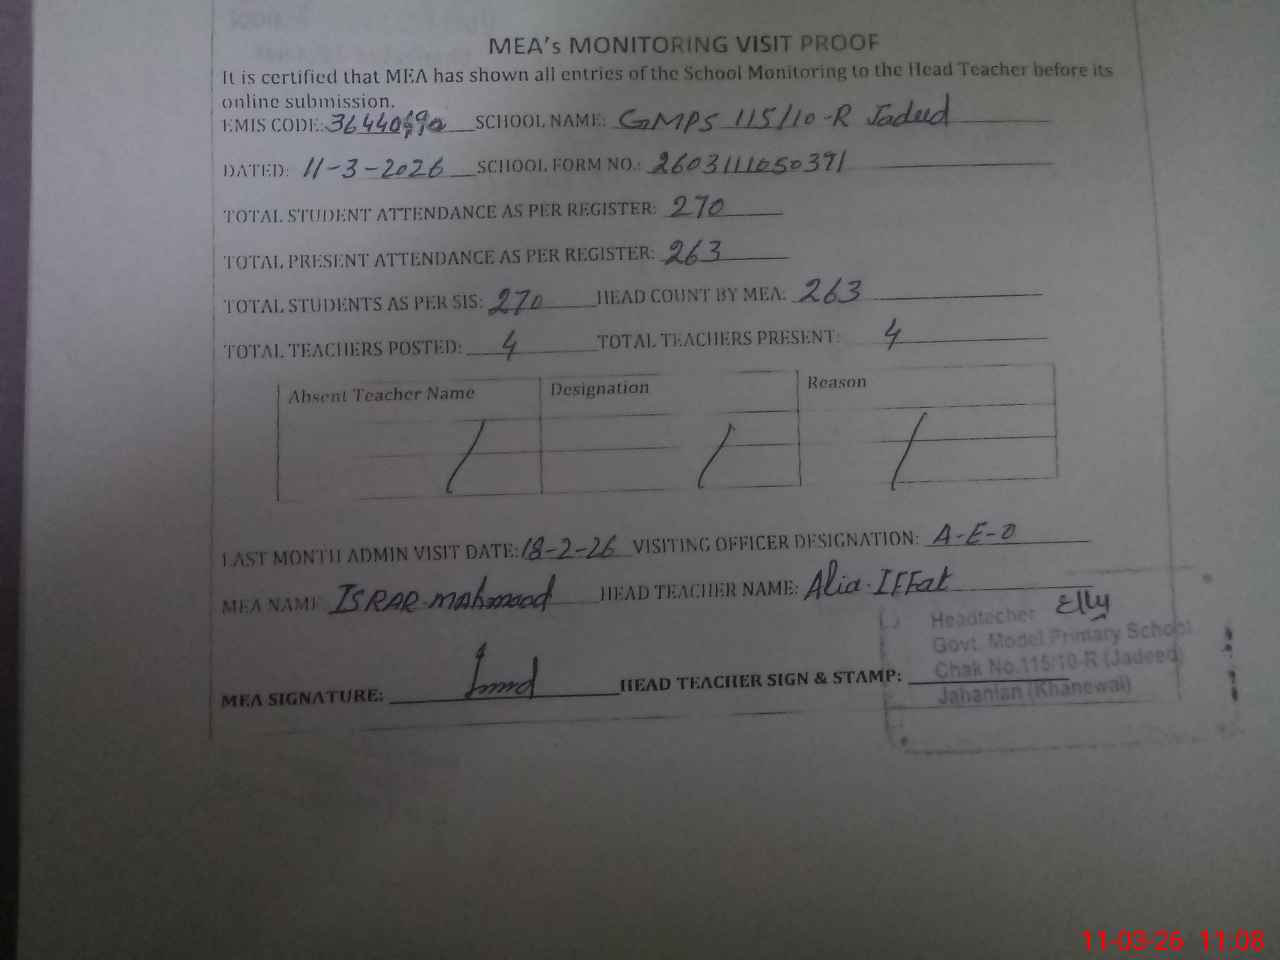 MEA's MONITORING VISIT PROOF
It is certified that MEA has shown all entries of the School Monitoring to the Head Teacher before its
online submission.
EMIS CODE: SCHOOL NAME: GMPS 115/10-R Jadeed
DATED: 11-3-2026 SCHOOL FORM NO.:
TOTAL STUDENT ATTENDANCE AS PER REGISTER: 270
TOTAL PRESENT ATTENDANCE AS PER REGISTER: 263
TOTAL STUDENTS AS PER SIS: 270 HEAD COUNT BY MEA: 263
TOTAL TEACHERS POSTED: 4 TOTAL TEACHERS PRESENT: 4
Absent Teacher Name Designation Reason
LAST MONTH ADMIN VISIT DATE: 18-2-26 VISITING OFFICER DESIGNATION: A-E-O
MEA NAME ISRAR mahmood HEAD TEACHER NAME: Alia IFFat
MEA SIGNATURE: HEAD TEACHER SIGN & STAMP:
Headtecher
Govt. Model Primary School
Chak No.115/10-R (Jadeed)
Jahanian (Khanewal)
11-03-26 11:08